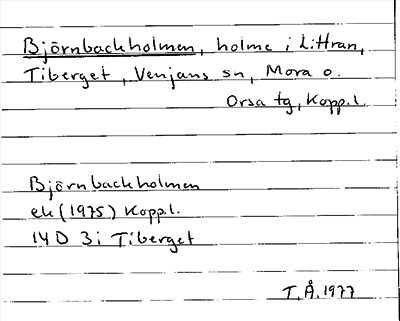 Björnbackholmen, holme i Littran,
Tiberget, Venjans sn, Mora o.
Orsa tg, Kopp.l.
Björnbackholmen
ek (1975) Kopp.l.
14D 3i Tiberget
T.Å. 1977